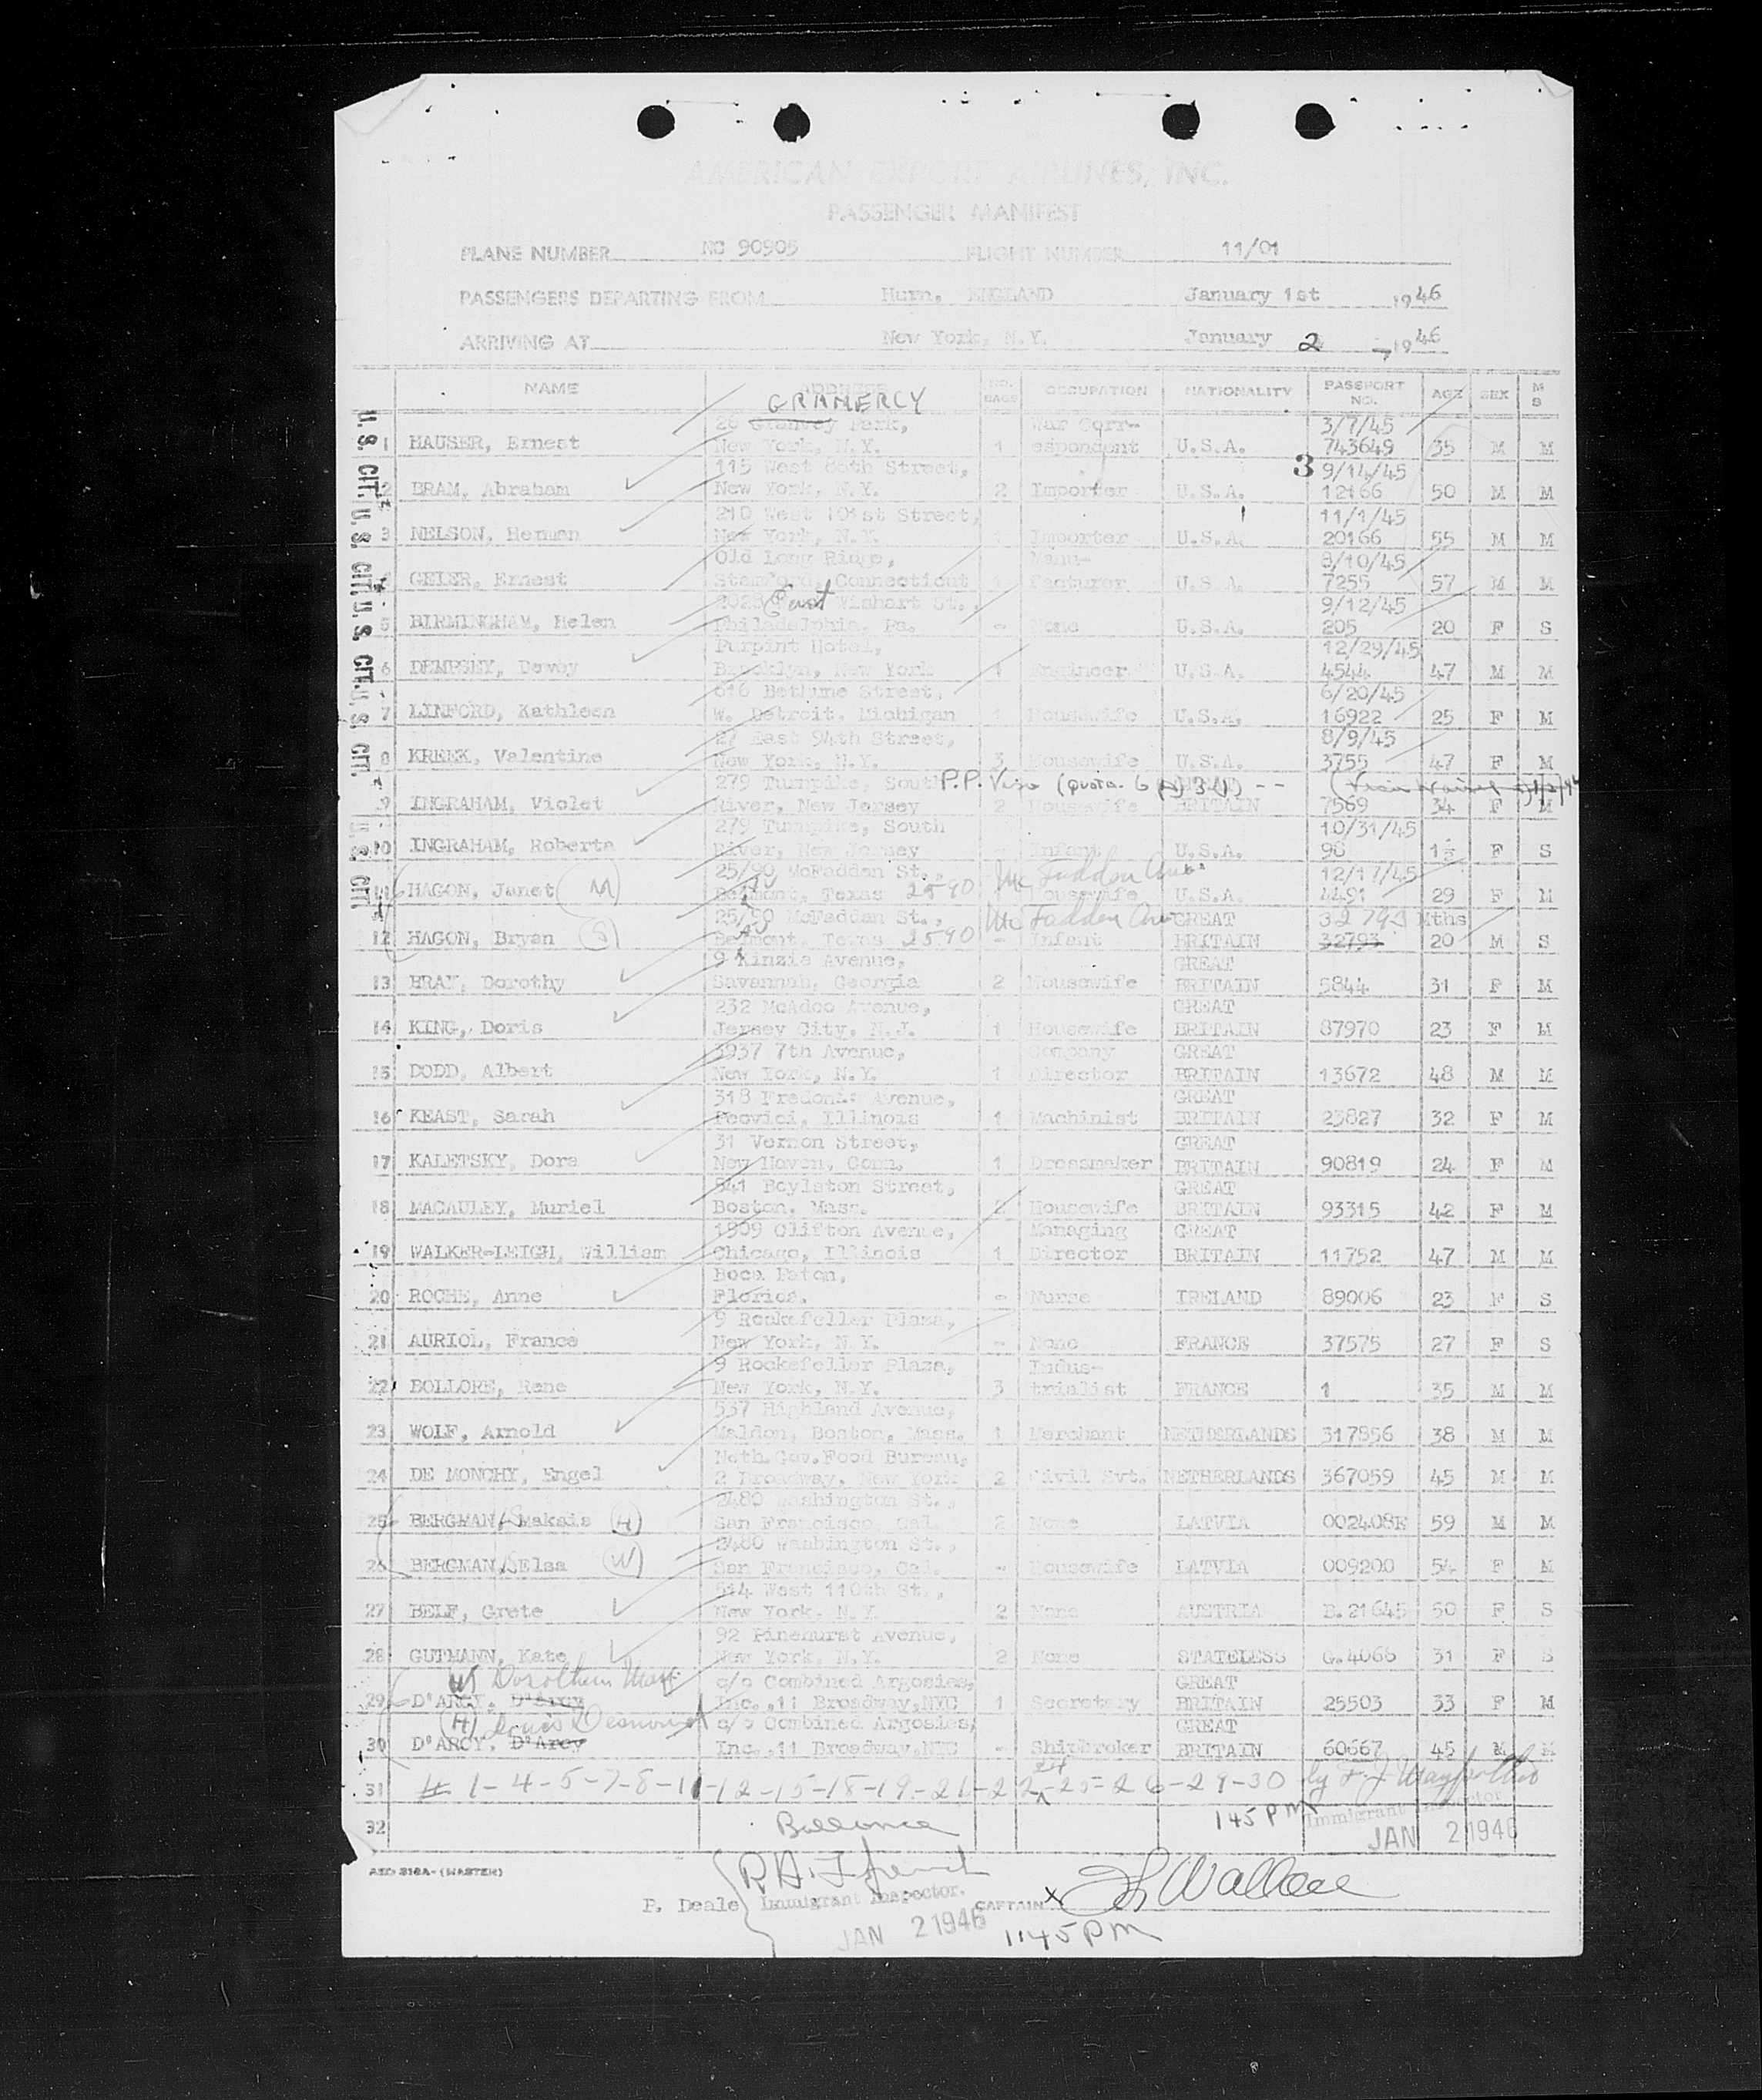 AMERICAN EXPORT AIRLINES, INC.
PASSENGER MANIFEST
PLANE NUMBER NC 90905 FLIGHT NUMBER 11/01
PASSENGERS DEPARTING FROM Hurn, ENGLAND January 1st 1946
ARRIVING AT New York, N.Y. January 2, 1946
NAME ADDRESS NO. BAGS OCCUPATION NATIONALITY PASSPORT NO. AGE SEX M S
GRAMERCY
28 Gramvey Park, War Corr- 3/7/45
1 HAUSER, Ernest New York, N.Y. 1 espondent U.S.A. 743649 35 M M
115 West 86th Street, 3 9/14/45
2 BRAM, Abraham New York, N.Y. 2 Importer U.S.A. 12166 50 M M
210 West 101st Street, 11/1/45
3 NELSON, Herman New York, N.Y. 1 Importer U.S.A. 20166 55 M M
Old Long Ridge, Manu- 8/10/45
4 GEIER, Ernest Stamford, Connecticut facturer U.S.A. 7255 57 M M
2028 East Wishart St., 9/12/45
5 BIRMINGHAM, Helen Philadelphia, Pa. - None U.S.A. 205 20 F S
Purpint Hotel, 12/29/45
6 DEMPSEY, Dewey Brooklyn, New York 1 Engineer U.S.A. 4544 47 M M
616 Bethune Street, 6/20/45
7 LINFORD, Kathleen W. Detroit, Michigan 1 Housewife U.S.A. 16922 25 F M
27 East 94th Street, 8/9/45
8 KREEK, Valentine New York, N.Y. 3 Housewife U.S.A. 3755 47 F M
279 Turnpike, South P.P. Visa (Quota-6 A) 3 (1) --
9 INGRAHAM, Violet River, New Jersey 2 Housewife BRITAIN 7569 34 F M
279 Turnpike, South 10/31/45
10 INGRAHAM, Roberta River, New Jersey Infant U.S.A. 98 F S
25/90 McFaddan St., McFadden Ave 12/17/45
11 HAGON, Janet (M) Texas 2590 Housewife U.S.A. 4491 29 F M
25/90 McFaddan St., McFadden Ave GREAT 32793 Mths
12 HAGON, Bryan (S) Texas 2590 - Infant BRITAIN 32793 20 M S
9 Kinzie Avenue, GREAT
13 BRAY, Dorothy Savannah, Georgia 2 Housewife BRITAIN 5844 31 F M
232 McAdoo Avenue, GREAT
14 KING, Doris Jersey City, N.J. 1 Housewife BRITAIN 87970 23 F M
3937 7th Avenue, Company GREAT
15 DODD, Albert New York, N.Y. 1 Director BRITAIN 13672 48 M M
318 Fredonia Avenue, GREAT
16 KEAST, Sarah Peovici, Illinois 1 Machinist BRITAIN 23827 32 F M
31 Vernon Street, GREAT
17 KALETSKY, Dora New Haven, Conn. 1 Dressmaker BRITAIN 90819 24 F M
541 Boylston Street, GREAT
18 MACAULEY, Muriel Boston, Mass. 2 Housewife BRITAIN 93315 42 F M
1509 Clifton Avenue, Managing GREAT
19 WALKER-LEIGH, William Chicago, Illinois 1 Director BRITAIN 11752 47 M M
Boca Raton,
20 ROCHE, Anne Florida. - Nurse IRELAND 89006 23 F S
9 Rockefeller Plaza,
21 AURIOL, France New York, N.Y. - None FRANCE 37575 27 F S
9 Rockefeller Plaza, Indus-
22 BOLLORE, Rene New York, N.Y. 3 trialist FRANCE 1 35 M M
537 Highland Avenue,
23 WOLF, Arnold Maldon, Boston, Mass. 1 Merchant NETHERLANDS 317856 38 M M
Neth.Gov.Food Bureau,
24 DE MONCHY, Engel 2 Broadway, New York 2 Civil Svt. NETHERLANDS 367059 45 M M
2480 Washington St.,
25 BERGMAN/S Maksis (H) San Francisco, Cal. 2 None LATVIA 002408R 59 M M
2480 Washington St.,
26 BERGMAN/S Elsa (W) San Francisco, Cal. - Housewife LATVIA 009200 54 F M
514 West 110th St.,
27 BELF, Grete New York, N.Y. 2 None AUSTRIA B.21645 50 F S
92 Pinehurst Avenue,
28 GUTMANN, Kate New York, N.Y. 2 None STATELESS G.4066 31 F S
(W) Dorothea Mary c/o Combined Argosies, GREAT
29 D'ARCY, D'Arcy Inc.,11 Broadway,NYC 1 Secretary BRITAIN 25503 33 F M
(H) Louis Desmond c/o Combined Argosies, GREAT
30 D'ARCY, D'Arcy Inc.,11 Broadway,NYC - Shipbroker BRITAIN 60667 45 M M
31 # 1-4-5-7-8-11-12-15-18-19-21-22-25-26-29-30 by F. J.
1 45 PM Immigrant Inspector
32 Ballance JAN 2 1946
AEO 318A-(MASTER)
P. Deale Immigrant Inspector. CAPTAIN X Wallace
JAN 2 1946 1:45 PM
U.S. CIT. U.S. CIT. U.S. CIT. U.S. CIT. U.S. CIT.